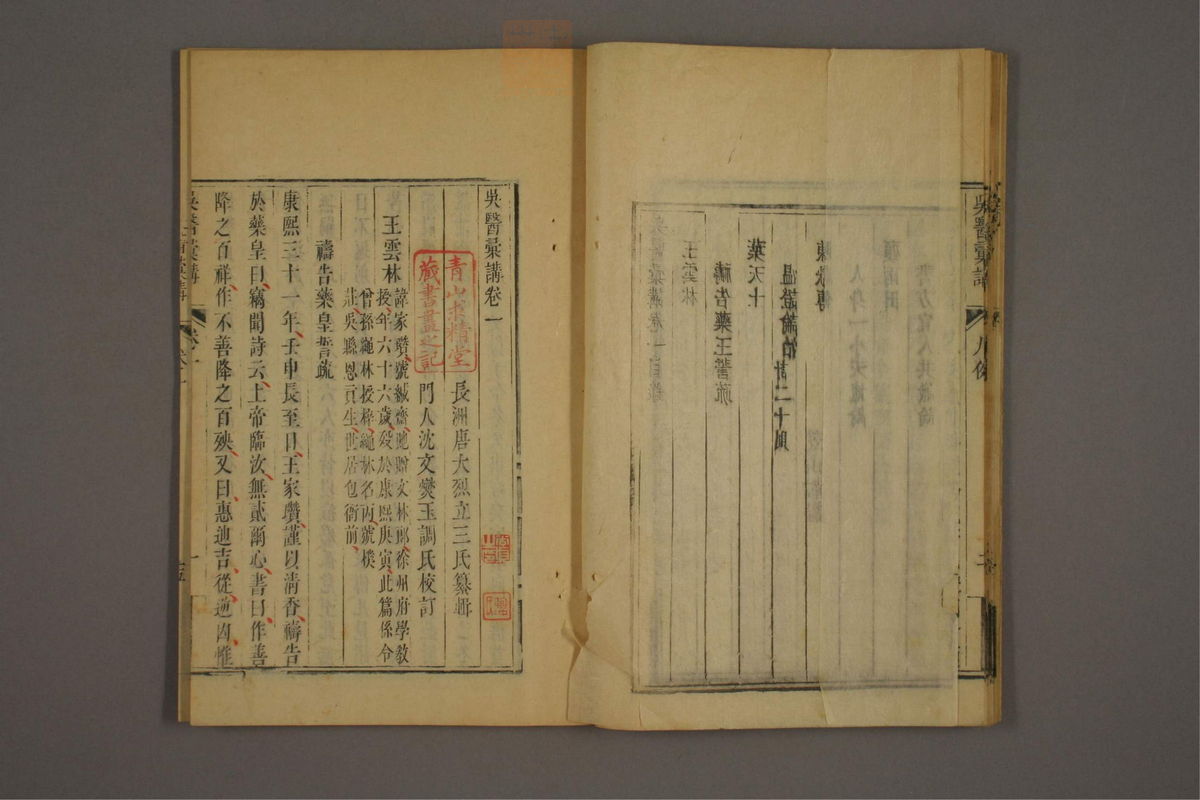 吳醫彙講 凡例
吳醫彙講卷一目錄
王雲林
禱告藥王誓疏
葉天士
溫證論治 計二十則
人身一小天地論
書方宜人共識論
吳醫彙講卷一
長洲唐大烈立三氏纂輯
門人沈文燮玉調氏校訂
青山求精堂
藏書畫之記
王雲林
諱家瓚號緘齋貤贈文林郎徐州府學教
授年六十六歲歿於康熙庚寅此篇係令
曾孫繩林授梓繩林名丙號樸
莊吳縣恩貢生世居包衙前
禱告藥皇誓疏
康熙三十一年壬申長至日王家瓚謹以清香禱告
於藥皇曰竊聞詩云上帝臨汝無貳爾心書曰作善
降之百祥作不善降之百殃又曰惠迪吉從逆凶惟
吳醫彙講 卷一